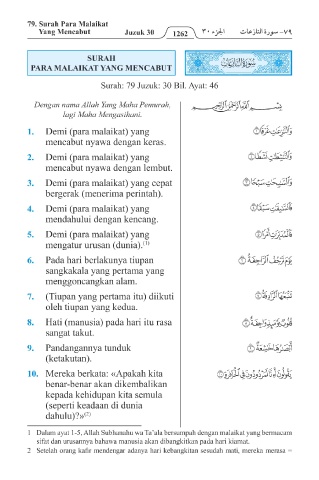 79. Surah Para Malaikat
Yang Mencabut Juzuk 30 1262 الجزء ٣٠ ٧٩- سورة النازعات
SURAH
PARA MALAIKAT YANG MENCABUT
سُورَةُ النَّازِعَاتِ
Surah: 79 Juzuk: 30 Bil. Ayat: 46
Dengan nama Allah Yang Maha Pemurah,
lagi Maha Mengasihani.
بِسْمِ اللَّهِ الرَّحْمَٰنِ الرَّحِيمِ
1. Demi (para malaikat) yang
mencabut nyawa dengan keras.
وَالنَّازِعَاتِ غَرْقًا ١
2. Demi (para malaikat) yang
mencabut nyawa dengan lembut.
وَالنَّاشِطَاتِ نَشْطًا ٢
3. Demi (para malaikat) yang cepat
bergerak (menerima perintah).
وَالسَّابِحَاتِ سَبْحًا ٣
4. Demi (para malaikat) yang
mendahului dengan kencang.
فَالسَّابِقَاتِ سَبْقًا ٤
5. Demi (para malaikat) yang
mengatur urusan (dunia).(1)
فَالْمُدَبِّرَاتِ أَمْرًا ٥
6. Pada hari berlakunya tiupan
sangkakala yang pertama yang
menggoncangkan alam.
يَوْمَ تَرْجُفُ الرَّاجِفَةُ ٦
7. (Tiupan yang pertama itu) diikuti
oleh tiupan yang kedua.
تَتْبَعُهَا الرَّادِفَةُ ٧
8. Hati (manusia) pada hari itu rasa
sangat takut.
قُلُوبٌ يَوْمَئِذٍ وَاجِفَةٌ ٨
9. Pandangannya tunduk
(ketakutan).
أَبْصَارُهَا خَاشِعَةٌ ٩
10. Mereka berkata: «Apakah kita
benar-benar akan dikembalikan
kepada kehidupan kita semula
(seperti keadaan di dunia
dahulu)?»(2)
يَقُولُونَ أَإِنَّا لَمَرْدُودُونَ فِي الْحَافِرَةِ ١٠
1 Dalam ayat 1-5, Allah Subhanahu wa Ta'ala bersumpah dengan malaikat yang bermacam
sifat dan urusannya bahawa manusia akan dibangkitkan pada hari kiamat.
2 Setelah orang kafir mendengar adanya hari kebangkitan sesudah mati, mereka merasa =